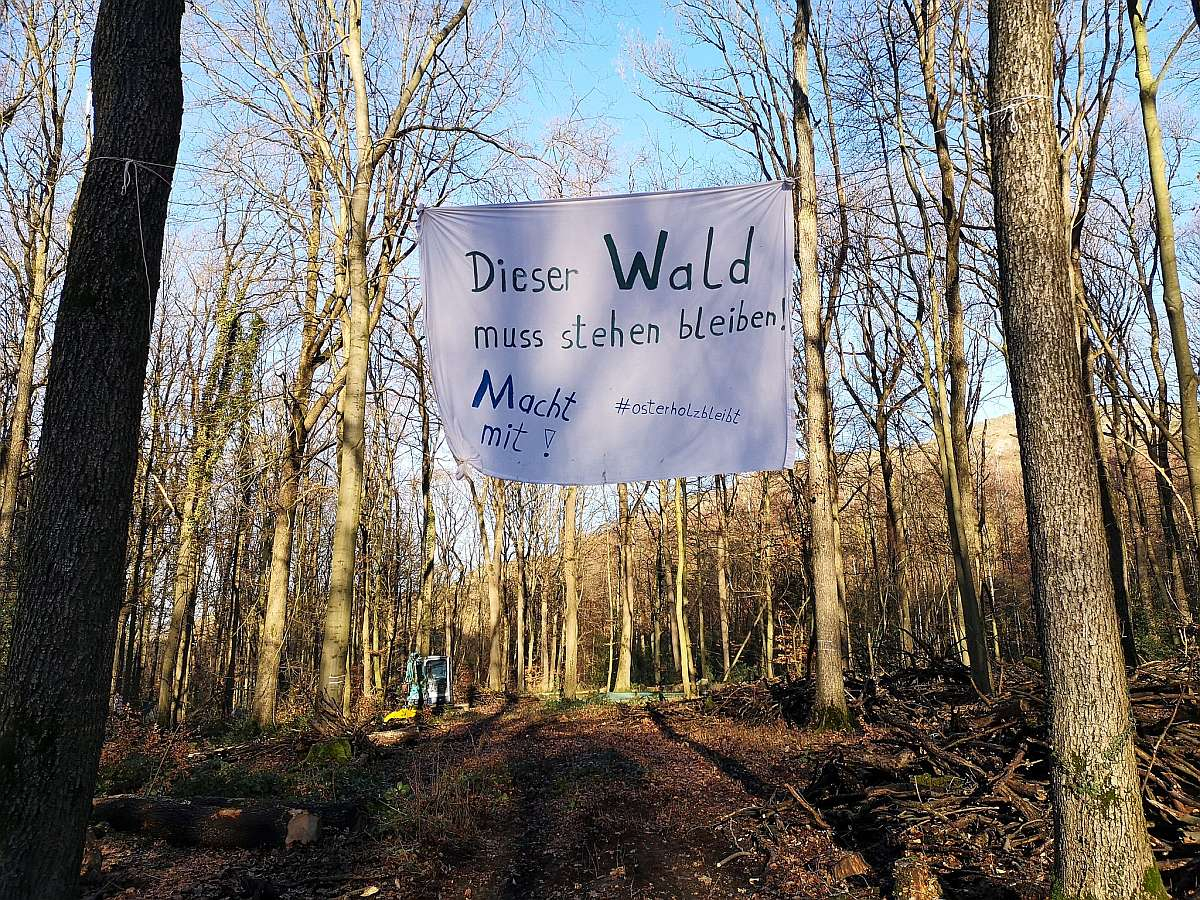 Dieser Wald
muss stehen bleiben!
Macht
mit!
#osterholzbleibt